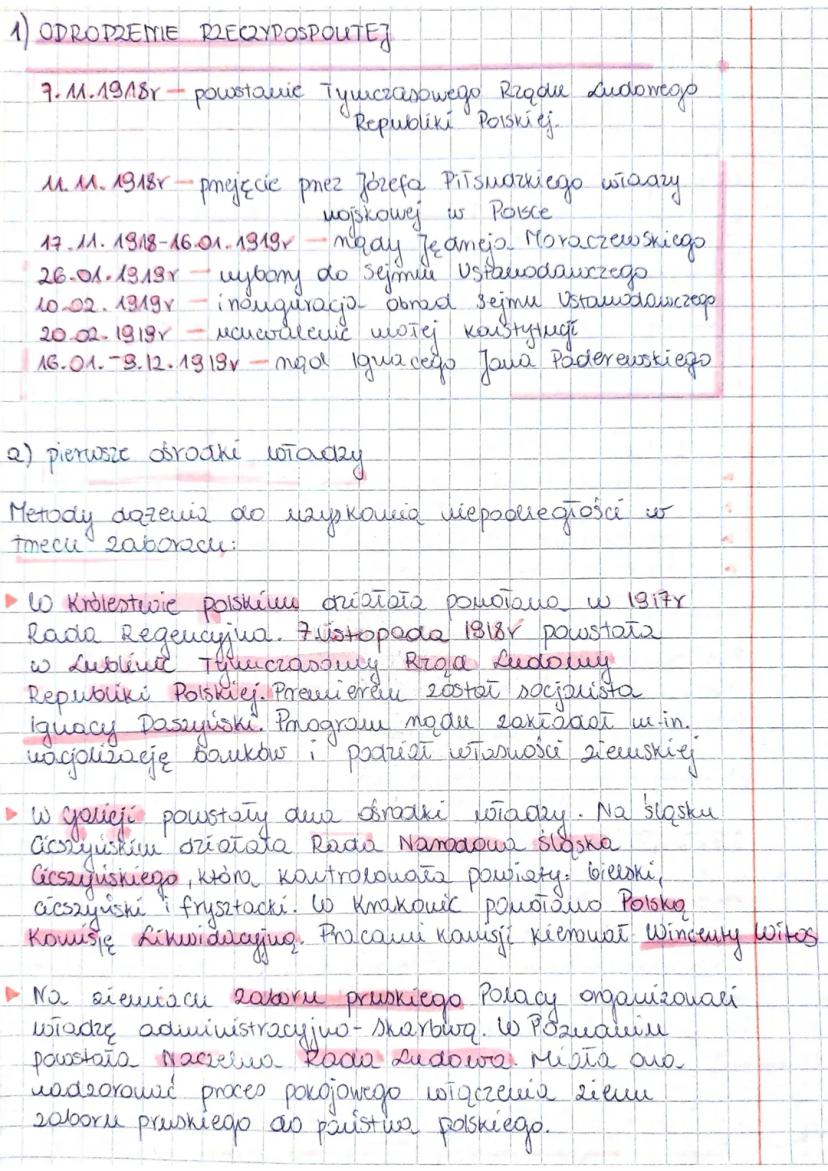 1) ODRODZENIE RZECZYPOSPOLITEJ
7.11.1918r – powstanie Tymczasowego Rządu Ludowego
Republiki Polskiej.
11.11.1918r – przejęcie przez Józefa Piłsudzkiego władzy
wojskowej w Polsce
17.11.1918-16.01.1919r – rządy Jędrzeja Moraczewskiego
26.01.1919r – wybory do Sejmu Ustawodawczego
10.02.1919r – inauguracja obrad Sejmu Ustawodawczego
20.02.1919r – uchwalenie małej konstytucji
16.01.-9.12.1919r – rząd Ignacego Jana Paderewskiego
a) pierwsze ośrodki władzy
Metody dążenia do uzyskania niepodległości w
trzech zaborach:
▸ W Królestwie polskim działała powołana w 1917r
Rada Regencyjna. 7 listopada 1918r powstała
w Lublinie Tymczasowy Rząd Ludowy
Republiki Polskiej. Premierem został socjalista
Ignacy Daszyński. Program rządu zakładał m.in.
nacjolizację banków i podział własności ziemskiej
▸ W galicji powstały dwa ośrodki władzy. Na śląsku
Cieszyńskim działała Rada Narodowa śląska
Cieszyńskiego, która kontrolowała powiaty: bielski,
cieszyński i frysztacki. W Krakowie powołano Polską
Komisję Likwidacyjną. Pracami komisji kierował Wincenty Witos
▸ Na ziemiach zaboru pruskiego Polacy organizowali
władzę administracyjno-skarbową. W Poznaniu
powstała Naczelna Rada Ludowa. Miała ona
nadzorować proces pokojowego włączenia ziem
zaboru pruskiego do państwa polskiego.